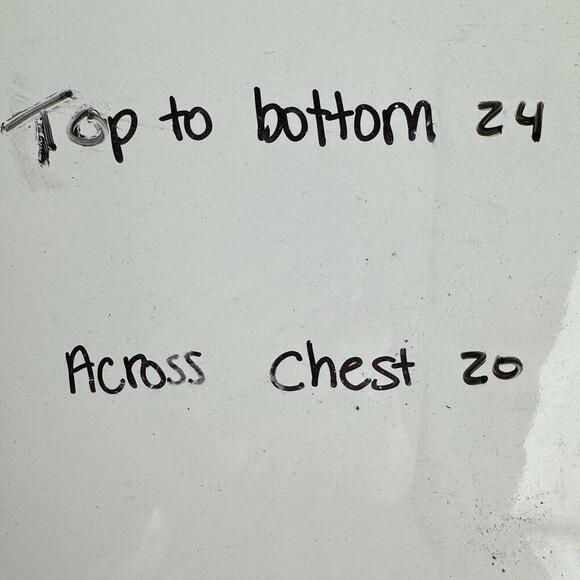 Top to bottom 24
Across chest 20